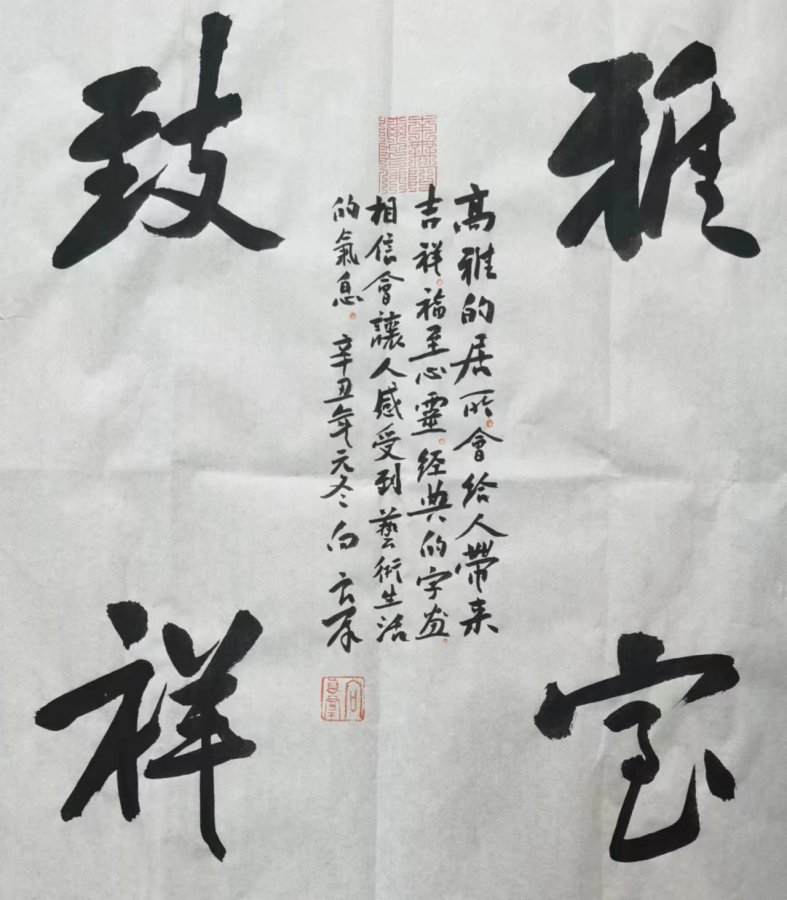 雅室
致祥
高雅的居所會给人帶来
吉祥福至心靈经典的字画
相信會讓人感受到藝術生活
的氣息 辛丑年元冬向